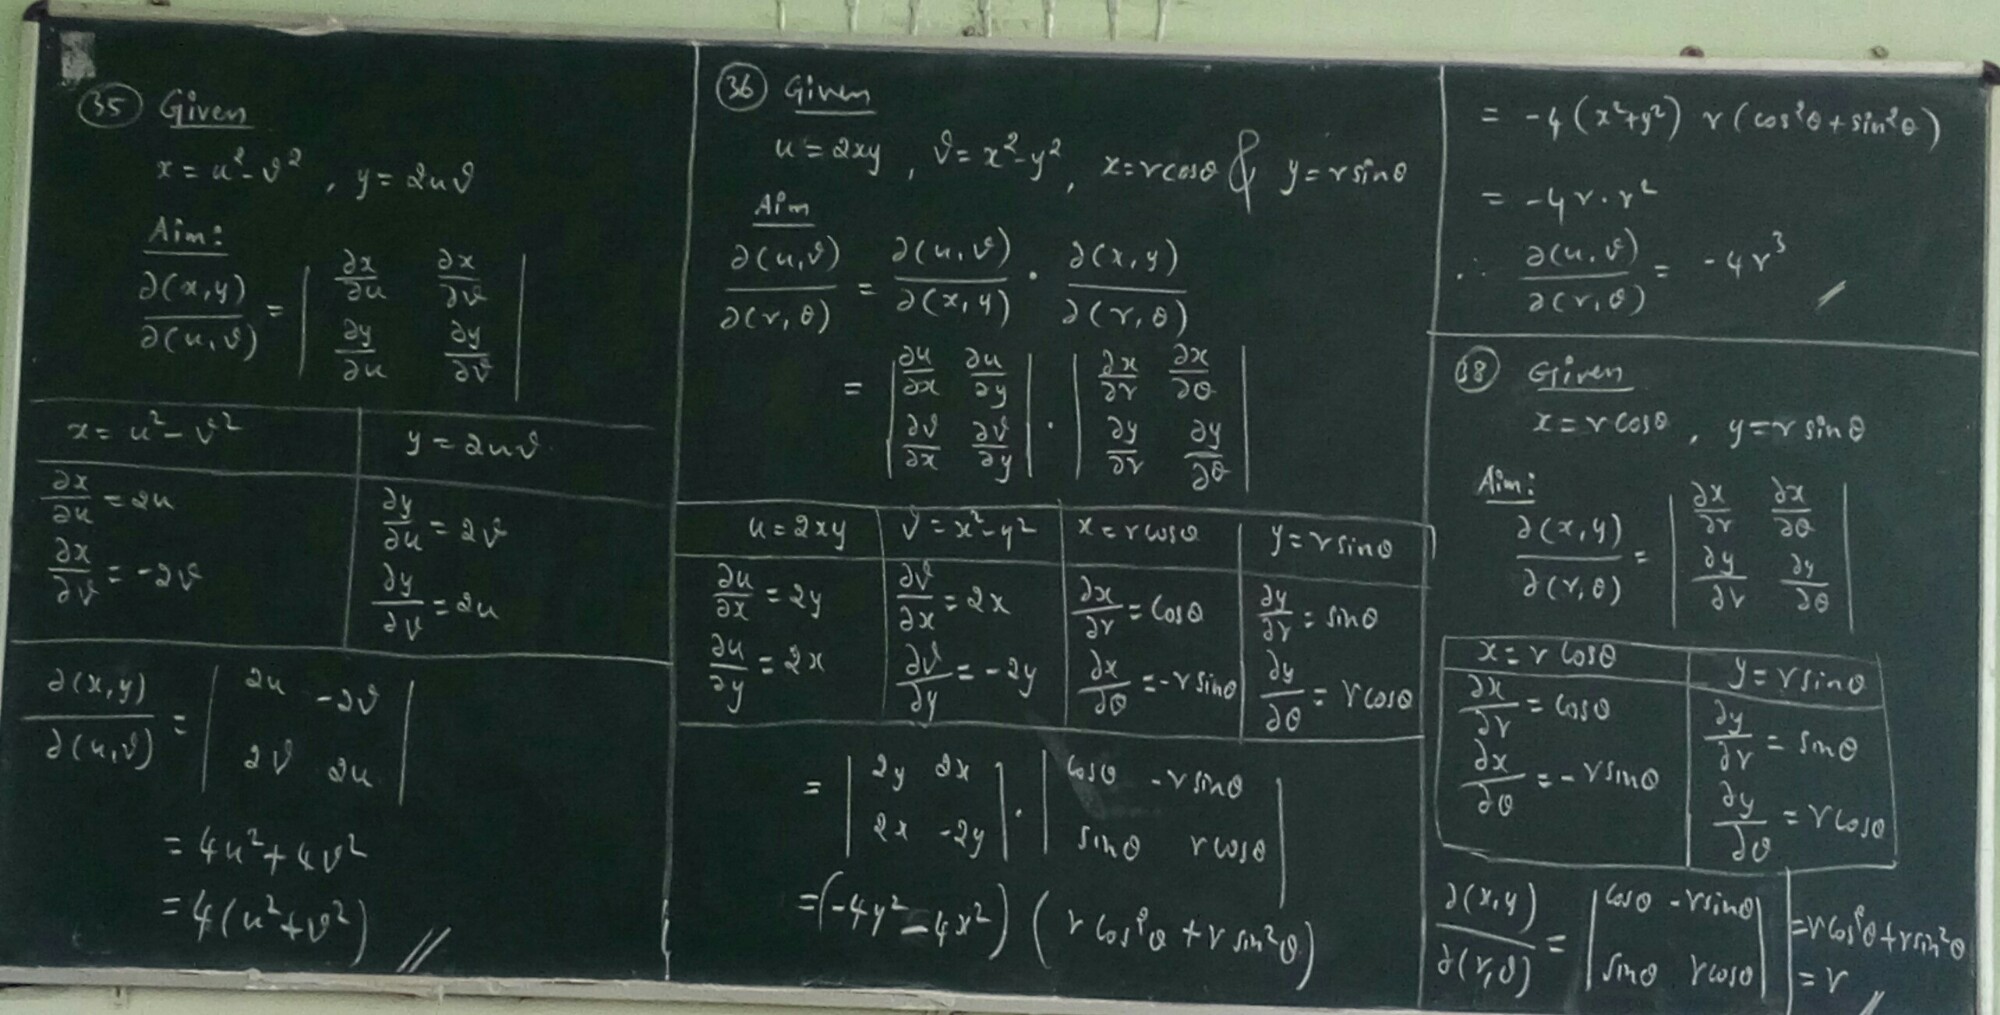 35 Given
x = u² - v² , y = 2uv
Aim:
∂(x,y)/∂(u,v) = | ∂x/∂u ∂x/∂v |
| ∂y/∂u ∂y/∂v |
x = u² - v² | y = 2uv
∂x/∂u = 2u | ∂y/∂u = 2v
∂x/∂v = -2v | ∂y/∂v = 2u
∂(x,y)/∂(u,v) = | 2u -2v |
| 2v 2u |
= 4u² + 4v²
= 4(u² + v²) //
36 Given
u = 2xy , v = x² - y² , x = r cosθ & y = r sinθ
Aim
∂(u,v)/∂(r,θ) = ∂(u,v)/∂(x,y) · ∂(x,y)/∂(r,θ)
= | ∂u/∂x ∂u/∂y | · | ∂x/∂r ∂x/∂θ |
| ∂v/∂x ∂v/∂y | | ∂y/∂r ∂y/∂θ |
u = 2xy | v = x² - y² | x = r cosθ | y = r sinθ
∂u/∂x = 2y | ∂v/∂x = 2x | ∂x/∂r = cosθ | ∂y/∂r = sinθ
∂u/∂y = 2x | ∂v/∂y = -2y | ∂x/∂θ = -r sinθ | ∂y/∂θ = r cosθ
= | 2y 2x | · | cosθ -r sinθ |
| 2x -2y | | sinθ r cosθ |
= (-4y² - 4x²) (r cos²θ + r sin²θ)
= -4(x² + y²) r(cos²θ + sin²θ)
= -4r·r²
∴ ∂(u,v)/∂(r,θ) = -4r³ //
38 Given
x = r cosθ , y = r sinθ
Aim:
∂(x,y)/∂(r,θ) = | ∂x/∂r ∂x/∂θ |
| ∂y/∂r ∂y/∂θ |
x = r cosθ | y = r sinθ
∂x/∂r = cosθ | ∂y/∂r = sinθ
∂x/∂θ = -r sinθ | ∂y/∂θ = r cosθ
∂(x,y)/∂(r,θ) = | cosθ -r sinθ | = r cos²θ + r sin²θ
| sinθ r cosθ | = r //